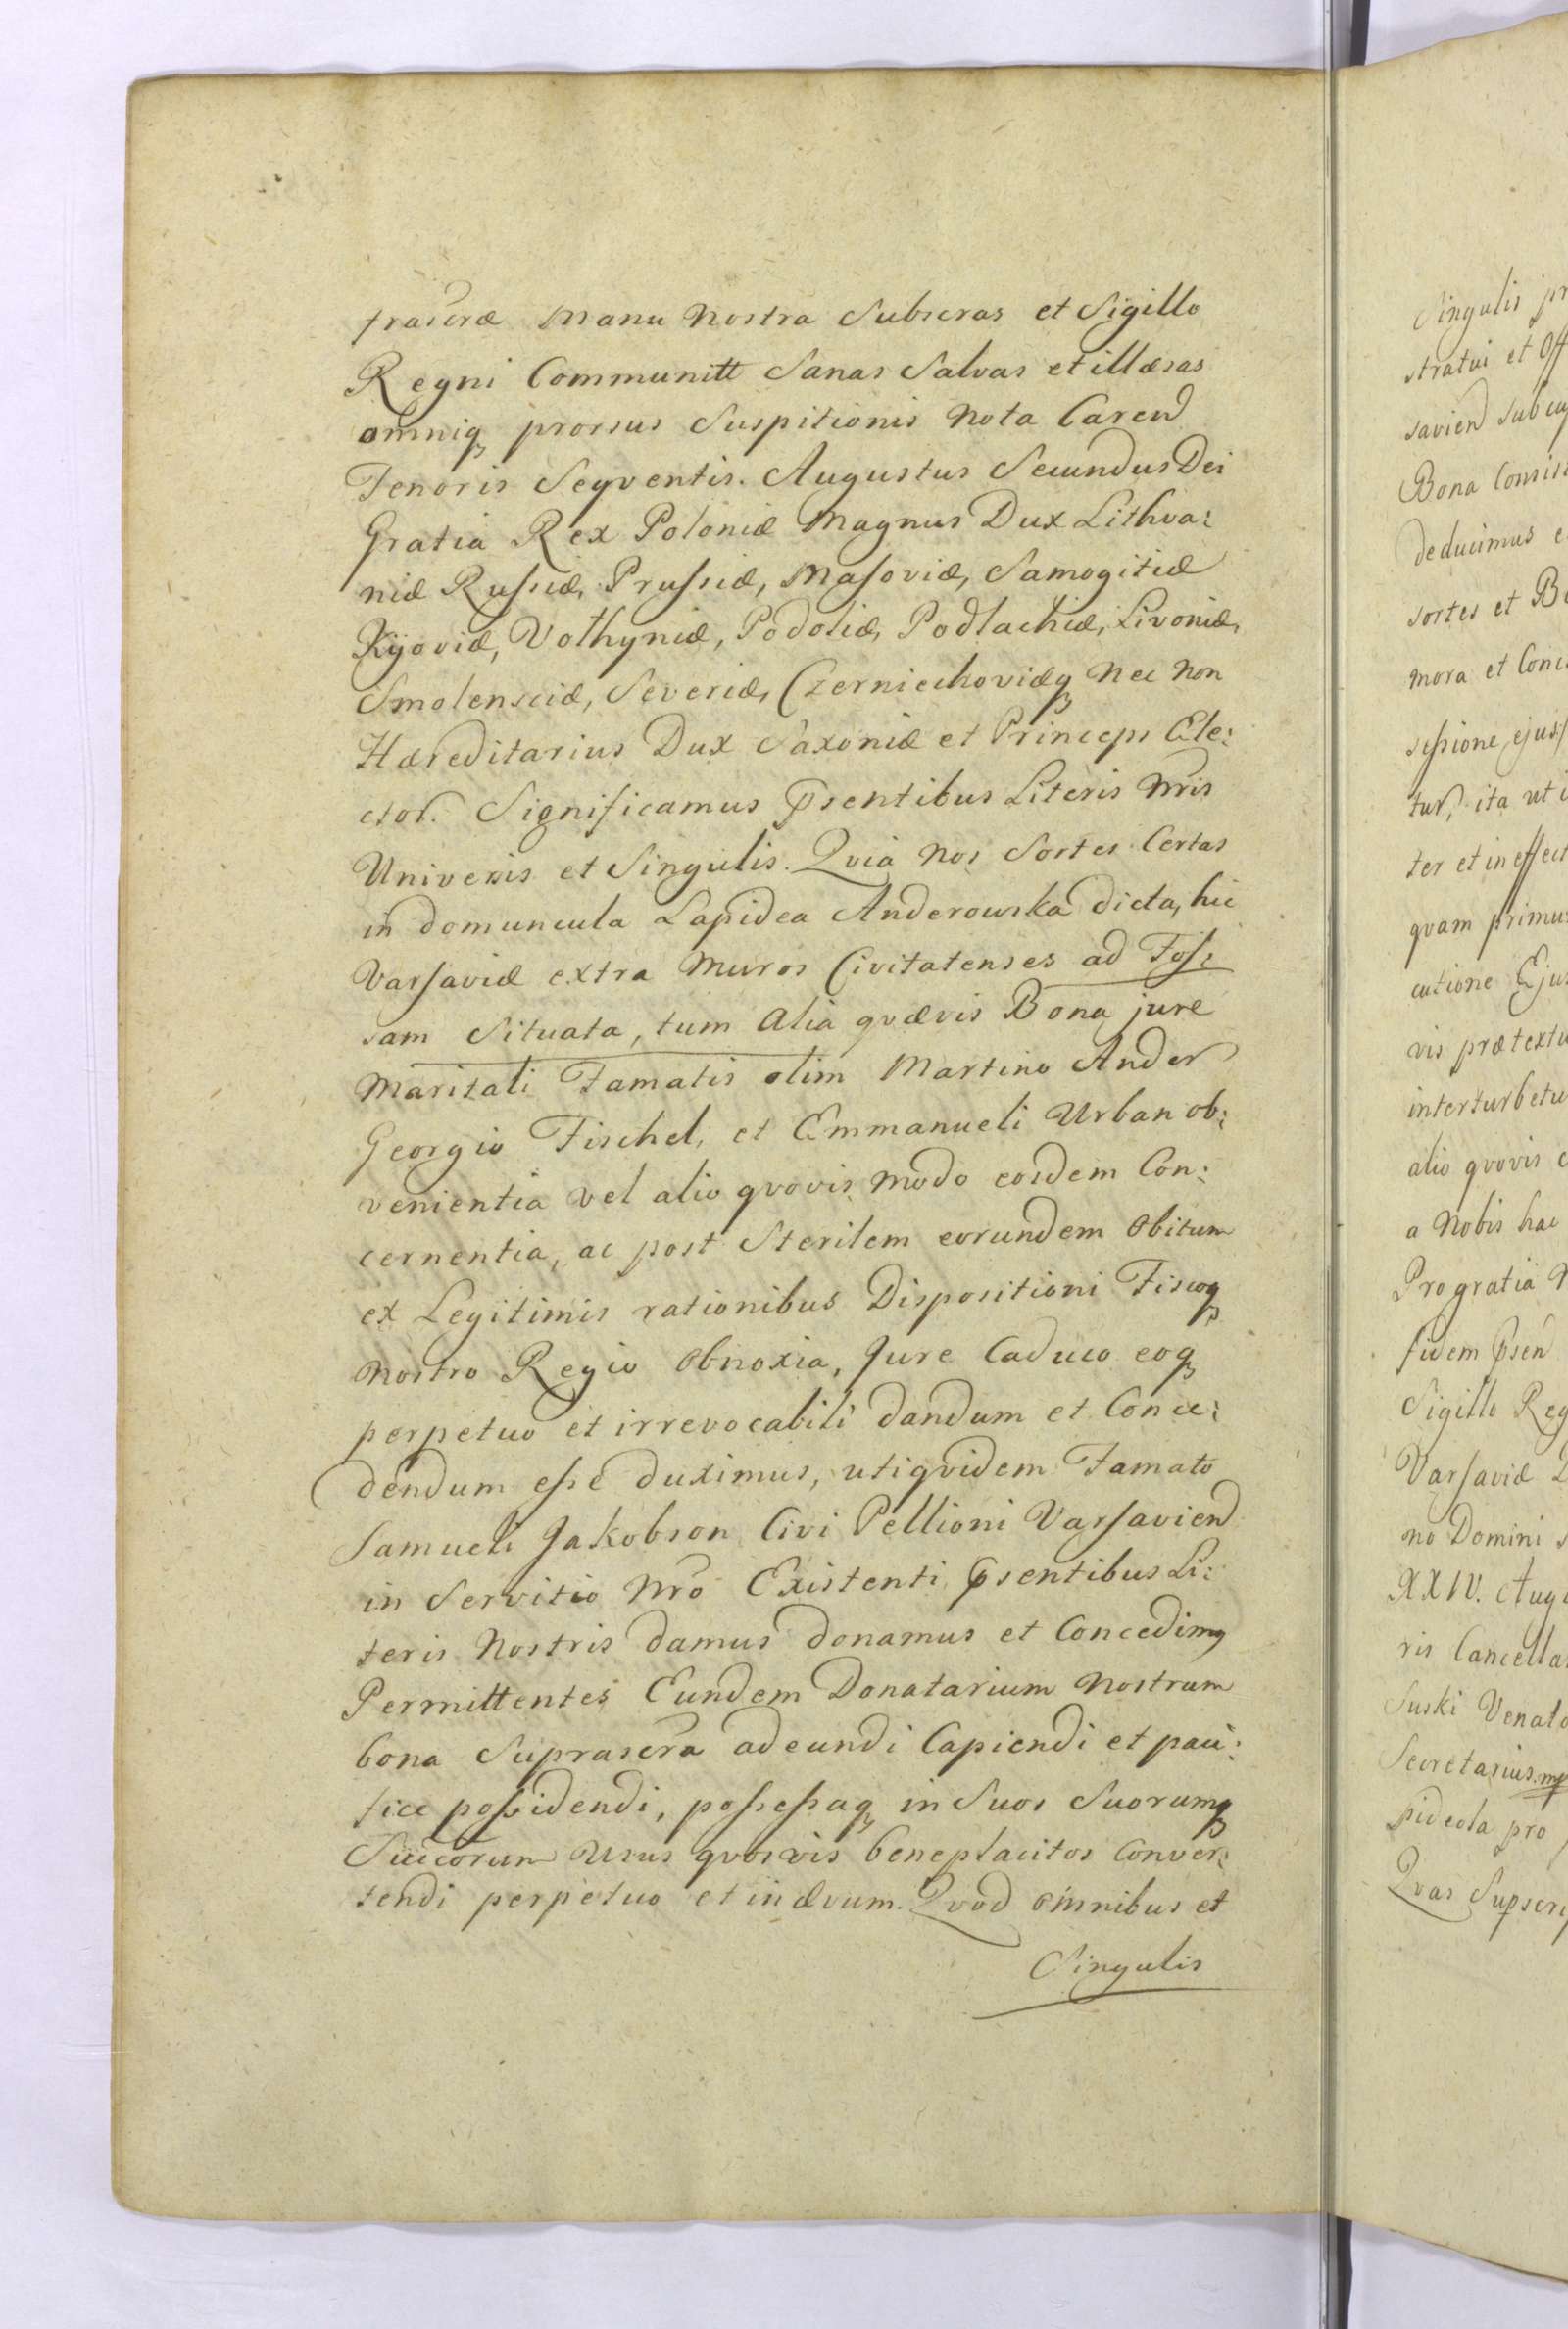 prascræ Manu Nostra Subscras et Sigillo
Regni Communitt Sanas Salvas et illæsas
omniq prorsus Suspitionis Nota Caren
Tenoris Seqventis. Augustus Secundus Dei
Gratia Rex Poloniæ Magnus Dux Lithva:
niæ Russiæ, Prussiæ, Masoviæ, Samogitiæ
Kijoviæ, Volhyniæ, Podoliæ, Podlachiæ, Livoniæ,
Smolensciæ, Severiæ, Czerniechoviæq Nec Non
Hæreditarius Dux Saxoniæ et Princeps Ele:
ctor. Significamus Psentibus Literis Nris
Universis et Singulis. Qvia Nos Sortes Certas
in domuncula Lapidea Anderowska dicta, hic
Varsaviæ extra Muros Civitatenses ad Fos:
sam Situata, tum Alia qvævis Bona jure
Maritali Famatis olim Martino Ander
Georgio Fischel, et Emmanueli Urban ob:
venientia vel alio qvovis modo eosdem Con:
cernentia, ac post Sterilem eorundem Obitum
ex Legitimis rationibus Dispositioni Fiscoq
Nostro Regio Obnoxia, Jure Caduco eoq
perpetuo et irrevocabili dandum et Conce:
dendum esse duximus, utiqvidem Famato
Samueli Jakobson Civi Pellioni Varsavien
in Servitio Nro Existenti Psentibus Li:
teris Nostris damus donamus et Concedimq
Permittentes Eundem Donatarium Nostrum
bona Suprascra adeundi Capiendi et paci:
fice possidendi, possessaq in Suos Suorumq
Succorum Usus qvosvis beneplacitos Conver:
tendi perpetuo et in ævum. Qvod omnibus et
Singulis
Singulis
stratui et Off
savien sub
Bona
deducimus
sortes et
mora et
sessione ejus
tur, ita ut
ter et in effect
qvam primu
cutione Eju
vis prætextu
interturbetu
alio qvovis
a Nobis hac
Pro gratia
fidem Psen
Sigillo Reg
Varsaviæ
no Domini
XXIV. Aug
ris Cancella
Suski Venato
Secretarius mp
pideola pro
Qvas